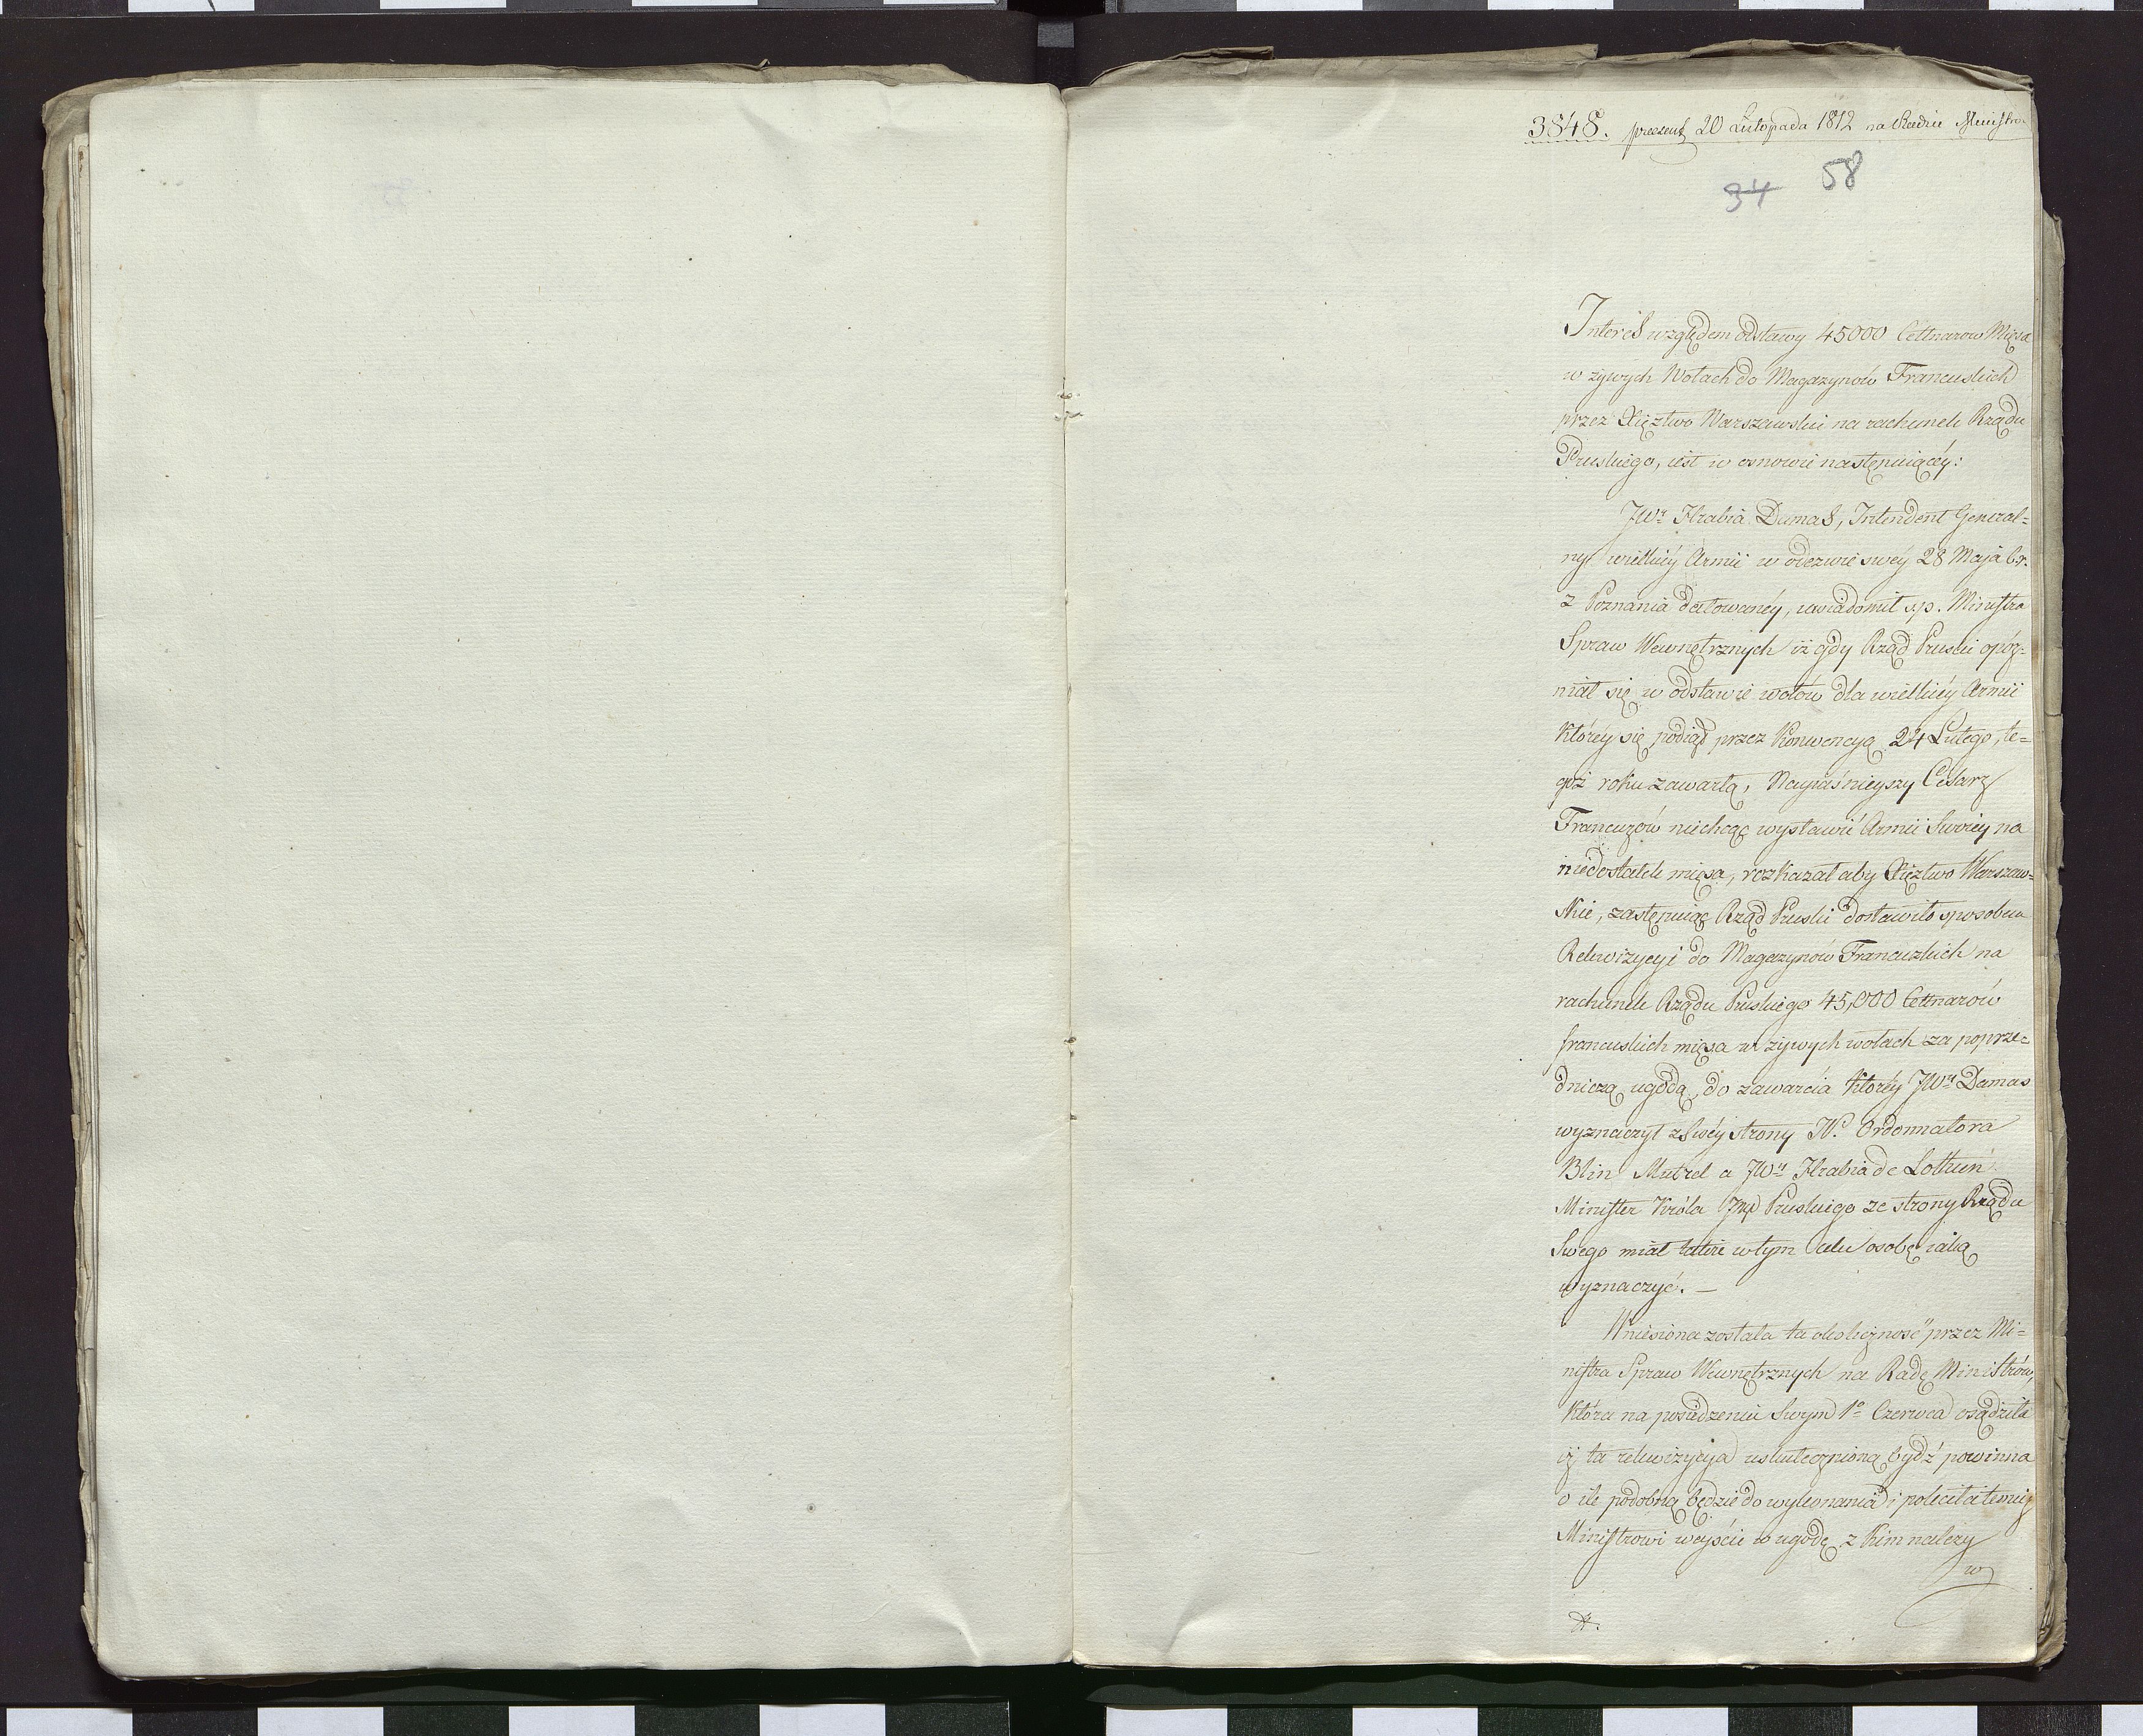 3848. prezent 20 Listopada 1812 na Radzie Ministrów
34 58
Interes względem odstawy 45000 Cetnarow Mięsa
w żywych Wołach do Magazynów Francuskich
przez Xięztwo Warszawskie na rachunek Rządu
Pruskiego, iest w osnowie następuiącéy:
JWny Hrabia Dumas, Intendent General=
ny wielkiéy Armii w odezwie swéy 28 Maja b.r.
z Poznania datowanéy, uwiadomił s.p. Ministra
Spraw Wewnętrznych iż gdy Rząd Pruski opóź-
niał się w odstawie wołów dla wielkiéy Armii
któréy się podiął przez Konwencyą 24 Lutego, te=
goż roku zawartą, Nayiaśnieyszy Cesarz
Francuzów niechcąc wystawić Armii Swoiey na
niedostatek mięsa, rozkazał aby Xięztwo Warszaw=
skie, zastępuiąc Rząd Pruski dostawiło sposobem
Rekwizycyi do Magazynów Francuzkich na
rachunek Rządu Pruskiego 45,000 Cetnarów
francuskich mięsa w żywych wołach za poprze=
dniczą ugodą, do zawarcia któréy JWny Dumas
wyznaczył z Swéy strony W. Ordonnatora
Blin Mutrel a JWny Hrabia de Lottum
Minister Króla Jmci Pruskiego ze strony Rządu
Swego miał także w tym celu osobę iaką
wyznaczyć. —
Wniesiona została ta okoliczność przez Mi=
nistra Spraw Wewnętrznych na Radę Ministrów,
która na posiedzeniu Swym 1o Czerwca osądziła
iż ta rekwizycya uskutecznioną bydź powinna
o ile podobną będzie do wykonania i poleciła temuż
Ministrowi weyście w ugodę z kim należy
w